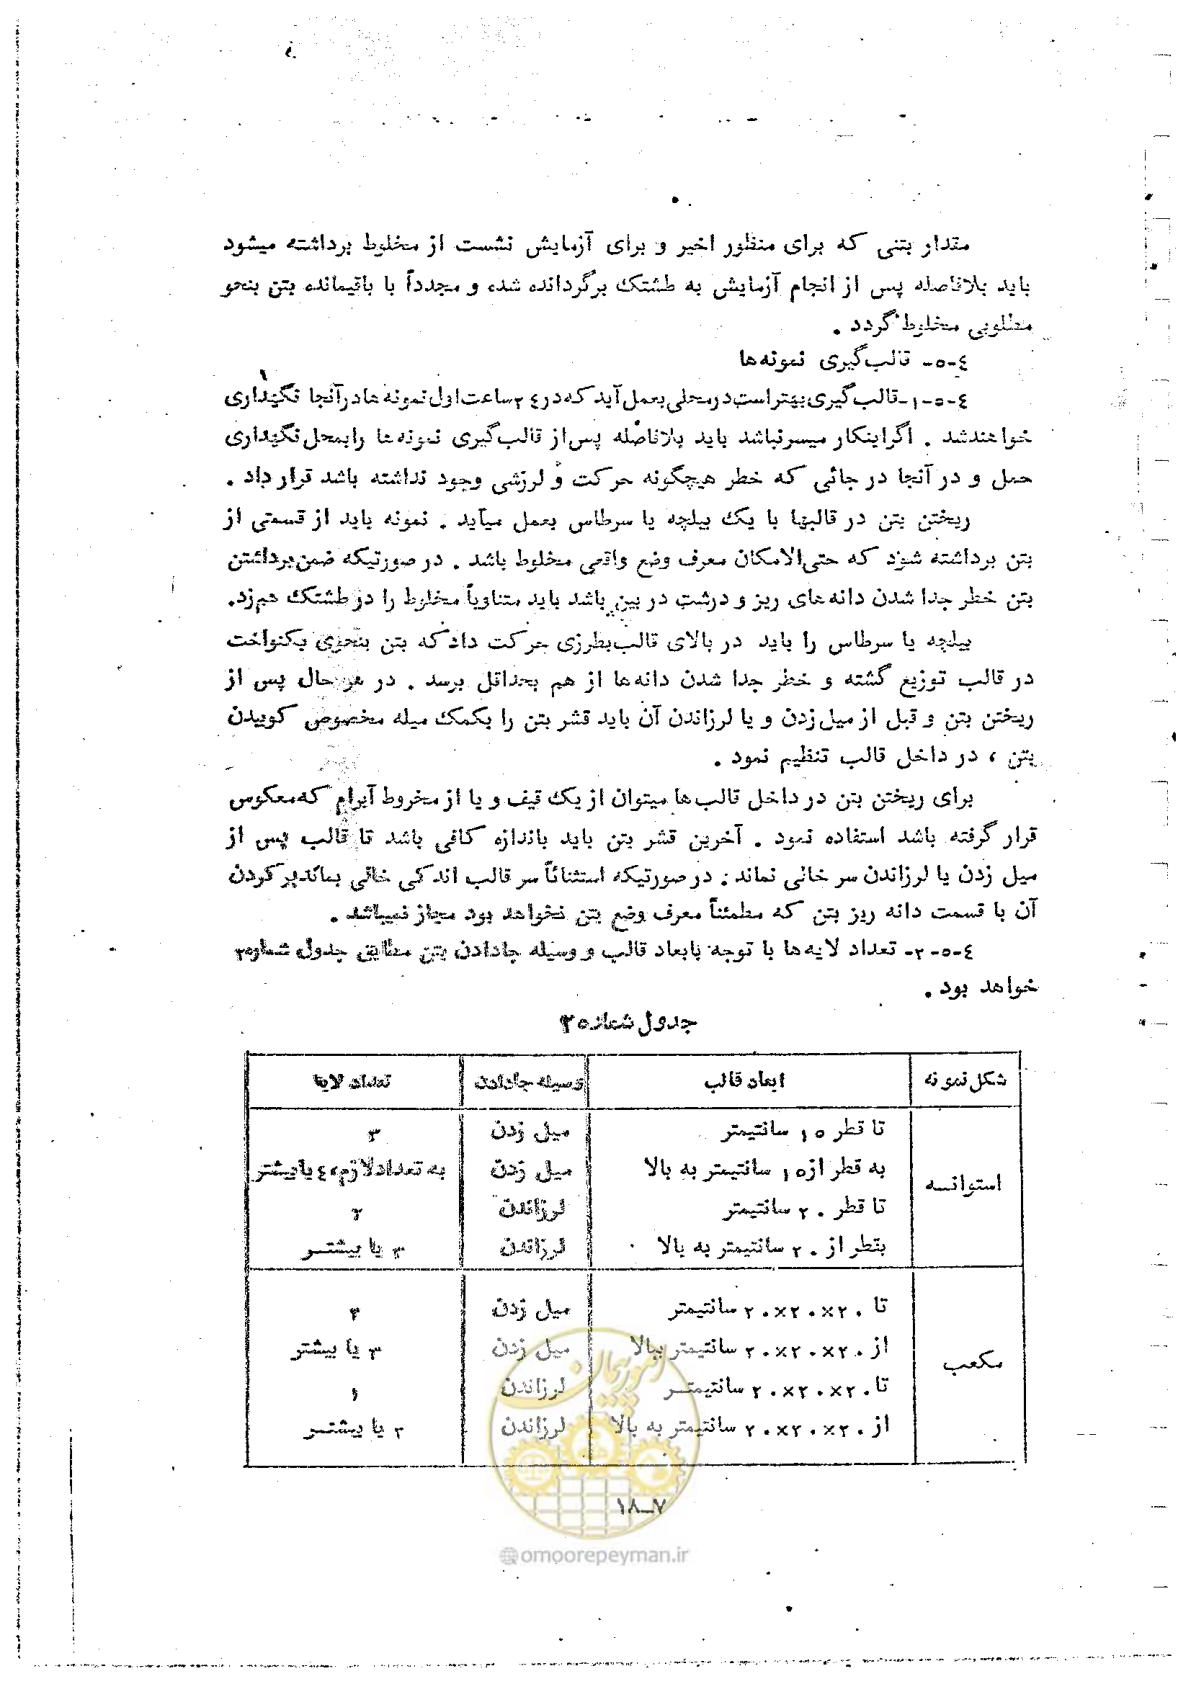 مقدار بتنی که برای منظور اخیر و برای آزمایش نشست از مخلوط برداشته میشود
باید بلافاصله پس از انجام آزمایش به طشتک برگردانده شده و مجدداً با باقیمانده بتن بنحو
مطلوبی مخلوط گردد .
٤-٥- قالب‌گیری نمونه‌ها
٤-٥-۱-قالب‌گیری بهتر است در محلی بعمل آید که در ۲٤ ساعت اول نمونه‌ها در آنجا نگهداری
خواهند شد . اگر اینکار میسر نباشد باید بلافاصله پس از قالب‌گیری نمونه‌ها را بمحل نگهداری
حمل و در آنجا در جائی که خطر هیچگونه حرکت و لرزشی وجود نداشته باشد قرار داد .
ریختن بتن در قالبها با یک بیلچه یا سرطاس بعمل میآید . نمونه باید از قسمتی از
بتن برداشته شود که حتی‌الامکان معرف وضع واقعی مخلوط باشد . در صورتیکه ضمن برداشتن
بتن خطر جدا شدن دانه‌های ریز و درشت در بین باشد باید متناوباً مخلوط را در طشتک هم زد.
بیلچه یا سرطاس را باید در بالای قالب بطرزی حرکت داد که بتن بنحوی یکنواخت
در قالب توزیع گشته و خطر جدا شدن دانه‌ها از هم بحداقل برسد . در هر حال پس از
ریختن بتن و قبل از میل زدن و یا لرزاندن آن باید قشر بتن را بکمک میله مخصوص کوبیدن
بتن ، در داخل قالب تنظیم نمود .
برای ریختن بتن در داخل قالب‌ها میتوان از یک قیف و یا از مخروط آبرام که معکوس
قرار گرفته باشد استفاده نمود . آخرین قشر بتن باید باندازه کافی باشد تا قالب پس از
میل زدن یا لرزاندن سر خالی نماند . در صورتیکه استثنائاً سر قالب اندکی خالی بماند پر کردن
آن با قسمت دانه ریز بتن که مطمئناً معرف وضع بتن نخواهد بود مجاز نمیباشد .
٤-٥-۲- تعداد لایه‌ها با توجه بابعاد قالب و وسیله جادادن بتن مطابق جدول شماره۲
خواهد بود .
جدول شماره ۲
شکل نمونه ابعاد قالب وسیله جادادن تعداد لایه
استوانه
تا قطر ۱٥ سانتیمتر میل زدن ۳
به قطر از ۱٥ سانتیمتر به بالا میل زدن به تعداد لازم، ٤ یا بیشتر
تا قطر ۲۰ سانتیمتر لرزاندن ۲
بقطر از ۲۰ سانتیمتر به بالا لرزاندن ۳ یا بیشتر
مکعب
تا ۲۰×۲۰×۲۰ سانتیمتر میل زدن
از ۲۰×۲۰×۲۰ سانتیمتر ببالا میل زدن ۳ یا بیشتر
تا ۲۰×۲۰×۲۰ سانتیمتر لرزاندن ۱
از ۲۰×۲۰×۲۰ سانتیمتر به بالا لرزاندن ۲ یا بیشتر
امور پیمان
۱۸-۷
@omoorepeyman.ir